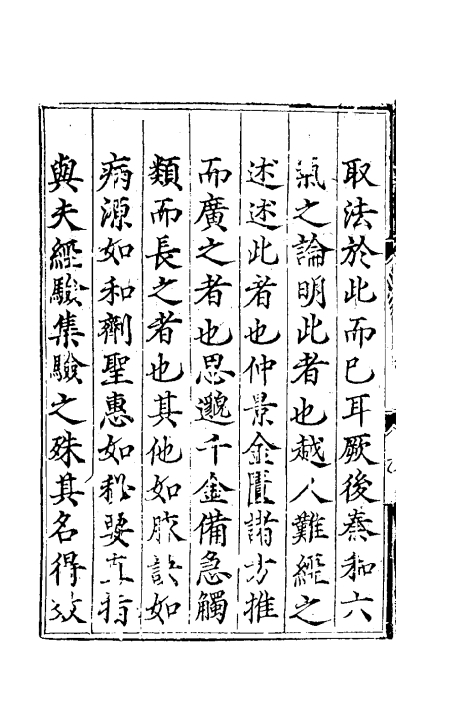 取法於此而已耳厥後秦和六
氣之論明此者也越人難經之
述述此者也仲景金匱諸方推
而廣之者也思邈千金備急觸
類而長之者也其他如脉訣如
病源如和劑聖惠如秘要
與夫經驗集驗之殊其名得效